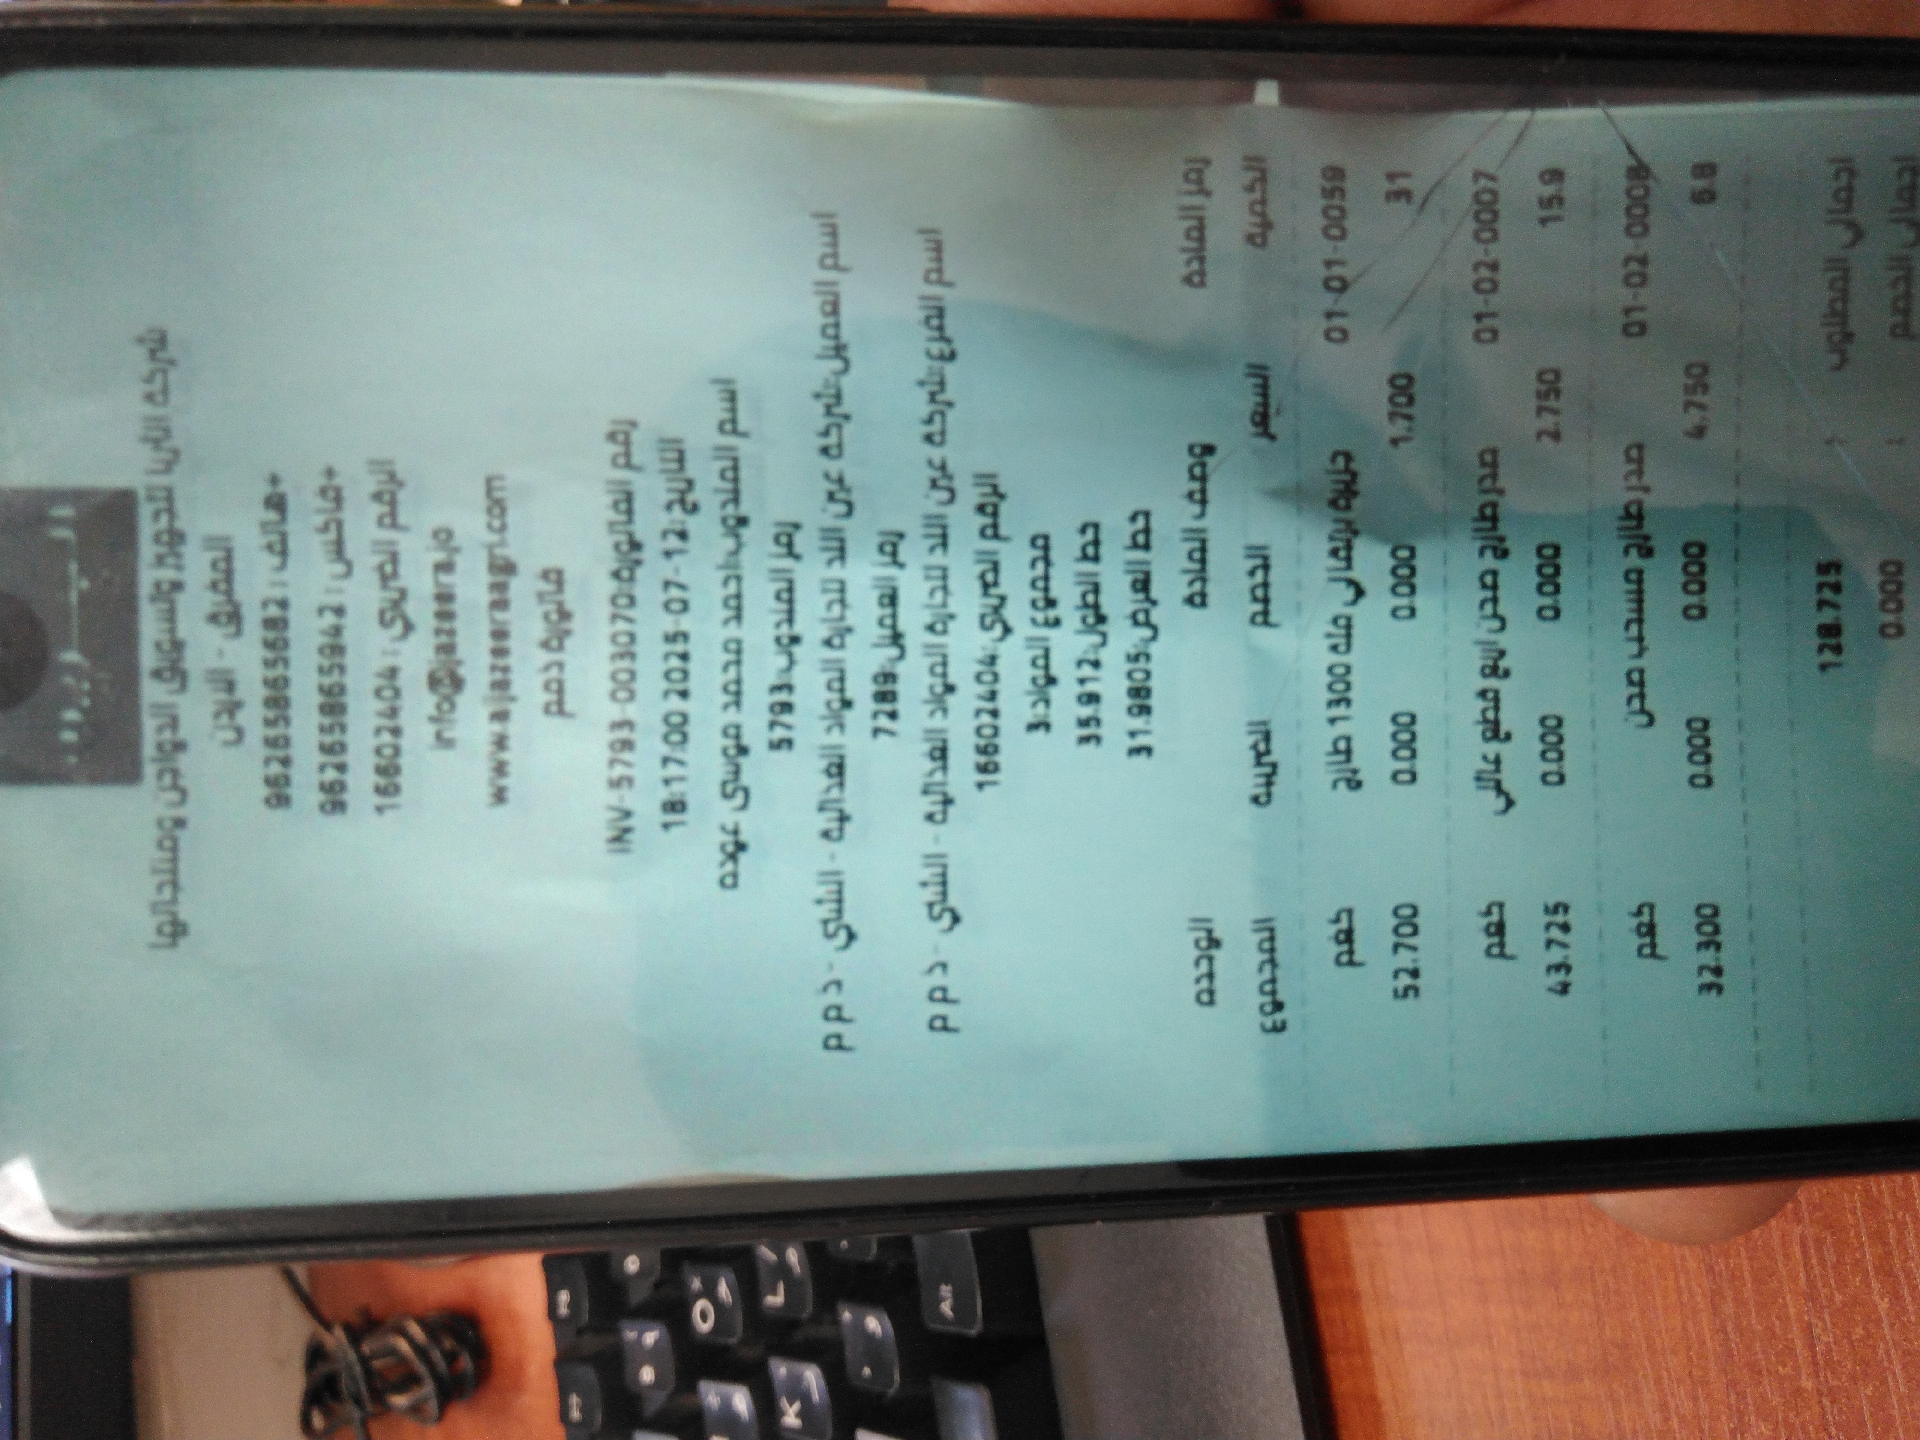 شركة الثريا للدجوم وتسويق الدواجن ومنتجاتها
المفرق - الاردن
هاتف : 96265865682+
فاكس : 96265865942+
الرقم الضريبي : 16602404
info@jazeera.jo
www.aljazeeraagri.com
فاتورة ذمم
رقم الفاتورة:INV-5793-0030700
التاريخ:12-07-2025 18:17:00
اسم المندوب:احمد محمد موسى عوده
رمز المندوب:5793
اسم العميل:شركة عين اللد لتجارة المواد الغذائية - الشلبي - ذ م م
رمز العميل:7289
اسم الفرع:شركة عين اللد لتجارة المواد الغذائية - الشلبي - ذ م م
الرقم الضريبي:16602404
مجموع المواد:3
خط الطول:35.912
خط العرض:31.9805
رمز المادة وصف المادة الوحدة
الكمية السعر الخصم الضريبة المجموع
01-01-0059 1300 طازج كغم
31 1.700 0.000 0.000 52.700
01-02-0007 صدر طازج صحن اربع قطع عائلي كغم
15.9 2.750 0.000 0.000 43.725
01-02-0008 صدر طازج مسحب صحن كغم
6.8 4.750 0.000 0.000 32.300
اجمالي المطلوب : 128.725
اجمالي الخصم : 0.000
F8
O
L
Alt
K